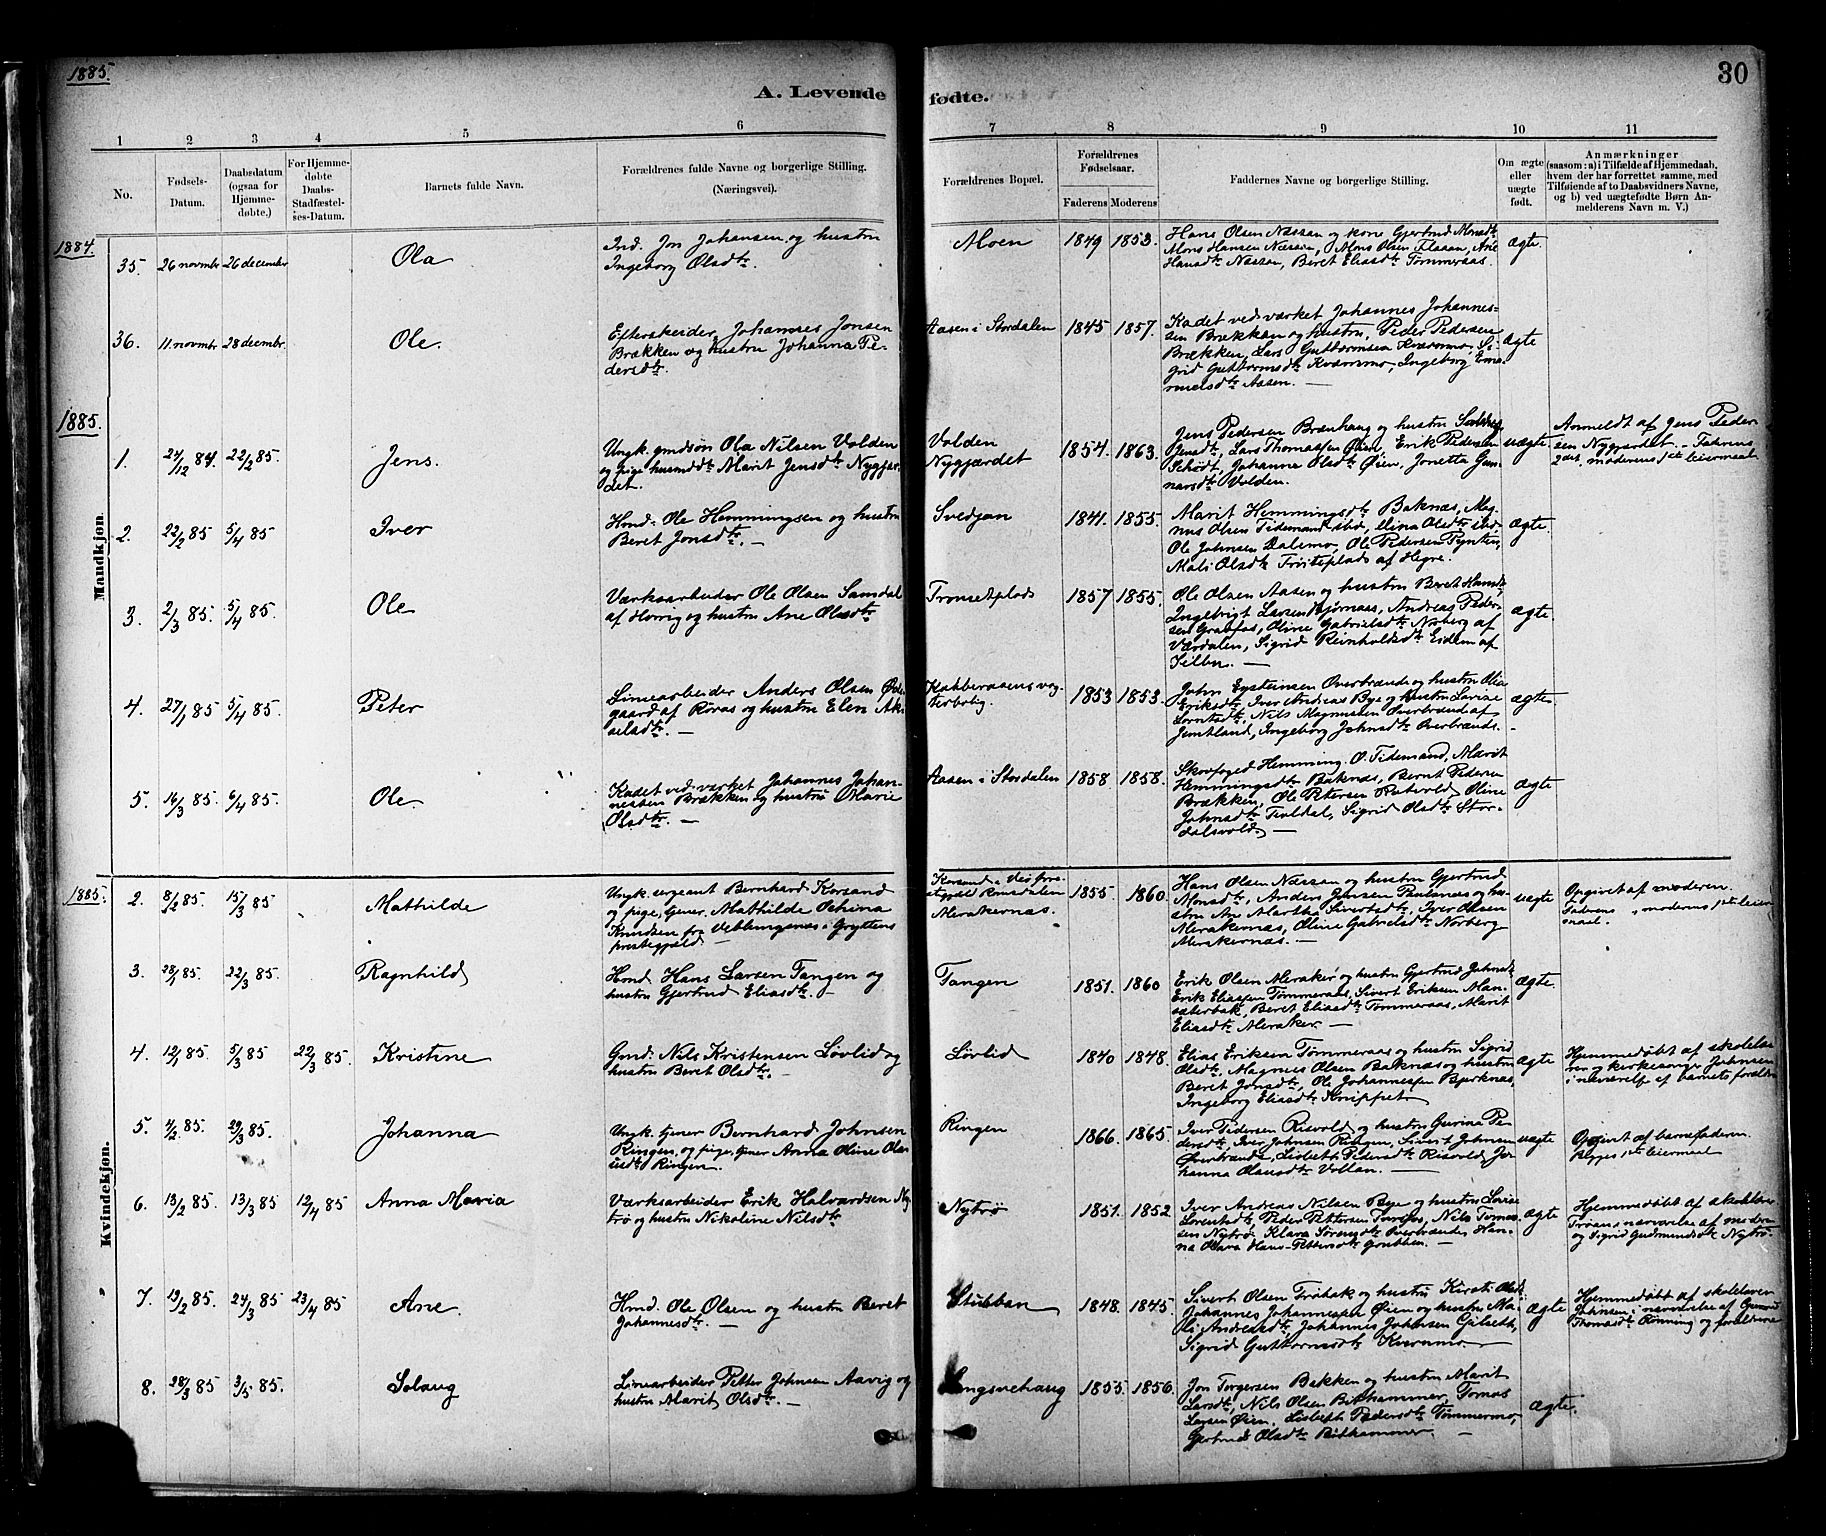 1885.
30
A. Levende fødte.
1 2 3 4 5 6 7 8 9 10 11
No.
Fødsels-
Datum.
Daabsdatum
(ogsaa for
Hjemme-
døbte.)
For Hjemme-
døbte
Daabs-
Stadfæstel-
ses-Datum.
Barnets fulde Navn.
Forældrenes fulde Navne og borgerlige Stilling.
(Næringsvei).
Forældrenes Bopæl.
Forældrenes
Fødselsaar.
Faderens Moderens
Faddernes Navne og borgerlige Stilling.
Om ægte
eller
uægte
født.
Anmærkninger
(saasom: a) i Tilfælde af Hjemmedaab,
hvem der har forrettet samme, med
Tilføiende af to Daabsvidners Navne,
og b) ved uægtefødte Børn An-
melderens Navn m. V.)
1884.
35. 26 novmbr 26 december
Ola
Ind. Jon Johansen og hustru
Ingeborg Olsdtr.
Moen
1849 1853.
Hans Olsen Næssan og kone Gjertrud Monsdtr
Mons Hansen Næssan, Mons Olsen Flaaan, Ane
Hansdtr Næssan, Beret Eliasdtr Tømmeraas.
ægte.
36. 11. novmbr 28 decembr.
Ole.
Efterskeider Johannes Jonsen
Brækken og hustru Johanna Pe-
dersdtr.
Aasen i Stordalen
1845 1857.
Kadet ved værket Johannes Johannes-
sen Brækken og hustru, Peder Pedersen
Brækken, Lars Guttormsen Kvarnmo, Si-
grid Guttormsdtr Kvarnmo, Ingeborg Ema-
nuelsdtr Aasen. —
ægte
1885.
Mandkjøn.
1. 24/12 84. 22/2 85.
Jens.
Ungk. gmdsøn Ola Nilsen Volden
og pige husmdtr Marit Jensdtr Nygjær-
det.
Volden
Nygjærdet
1854. 1863.
Jens Pedersen Brænhaug og hustru
Jensdtr, Lars Thomassen Øien, Erik Pedersen
Schødt, Johanna Olsdtr Øien, Jonetta Gun-
narsdtr Volden.
uægte
Anmeldt af Jens Peder-
sen Nygjærdet. – Faderens
2det, moderens 1ste leiermaal.
2. 22/2 85 5/4 85
Iver
Hmd. Ole Hemmingsen og hustru
Beret Jonsdtr. —
Svedjan
1841. 1855.
Marit Hemmingsdtr Baknæs, Mag-
nus Olsen Tidemand ibd, Elina Olsdtr ibd
Ole Johnsen Dalemo, Ole Pedersen Pynten,
Mali Olsdtr Fristeplads af Hegre.
Ægte
3. 2/3 85. 5/4 85.
Ole
Værksarbeider Ole Olsen Samdal
af Horrig og hustru Ane Olsdtr
Tronsetplads
1857 1855.
Ole Olsen Aasen og hustru Beret Hansdtr,
Ingebrigt Larsen Bjørnaas, Andreas Peder-
sen Graafos, Oline Gabrielsdtr Norberg af
Værdalen, Sigrid Reinholdsdtr Eidem af
Selbu. —
ægte.
4. 27/1 85 5/4 85.
Peter
Liniearbeider Anders Olsen Øde-
gaard af Røros og hustru Elen Ak-
selsdtr. —
Kabberaasens vog-
terbolig.
1853 1853.
John Eysteinsen Overbrænde og hustru Olia
Eriksdtr, Iver Andreas Bye og hustru Lovise
Lorntsdtr, Nils Magnusen Overbrænd af
Jemtland, Ingeborg Johnsdtr Overbrænde. -
ægte
5. 14/3 85. 6/4 85.
Ole
Kadet ved værket Johannes Johan-
nessen Brækken og hustru Marie
Olsdtr. —
Aasen i Stordalen
1858 1858.
Skovfoged Hemming O. Tidemand, Marit
Hemmingsdtr Baknæs, Bernt Pedersen
Brækken, Ole Petersen Oline
Johnsdtr Teveldal, Sigrid Olsdtr Stor-
dalsvold. —
Ægte
1885.
Kvindekjøn.
2. 8/2 85. 15/3 85
Mathilde
Ungk. sergeant Bernhard Korsand
og pige, tjener, Mathilde Ockina
Knudsen fra Veblungsnæs i Gryttens
prestegjeld —
Korsand i
Romsdalen
Merakernæs.
1855. 1860.
Hans Olsen Næssan og hustru Gjertrud
Monsdtr, Anders Jensen Paulsnæs og hu-
stru Ane Martha Sivertsdtr, Iver Olsen
Merakernæs, Oline Gabrielsdtr Norberg
Merakernæs. —
uægte
Opgivet af moderen.
Faderens , moderens 1ste leier-
maal.
3. 28/1 85. 22/3 85.
Ragnhild
Hmd. Hans Larsen Tangen og
hustru Gjertrud Eliasdtr. -
Tangen
1851. 1860
Erik Olsen Meraker og hustru Gjertrud Johnsdtr
Erik Eliassen Tømmeraas, Sivert Eriksen Man-
sæterbak, Beret Eliasdtr Tømmeraas, Marit
Eliasdtr Meraker. —
Ægte.
4. 12/1 85. 5/3 85 22/3 85.
Kristine
Gmd. Nils Kristensen Løvlid og
hustru Beret Olsdtr. —
Løvlid
1840 1848.
Elias Eriksen Tømmeraas og hustru Sigrid
Olsdtr, Magnus Olsen Baknæs og hustru
Beret Jonsdtr, Ole Johannessen Bjerknæs,
Ingeborg Eliasdtr Knippet.
ægte
Hjemmedøbt af skolelæ-
rer og kirkesanger Johnsen
i nærværelse af barnets forældre
5. 4/2 85. 29/3 85.
Johanna
Ungk. tjener Bernhard Johnsen
Ringen, og pige, tjener Anna Oline Ola-
usdtr Ringen.
Ringen
1866. 1865.
Iver Pedersen Risvold og hustru Gurina Pe-
dersdtr, Iver Johnsen Ringen, Sivert Johnsen
Overbrænde, Lisbeth Pedersdtr Risvold, Jo-
hanna Olausdtr Vollan. —
uægte
Opgivet af barnefaderen.
Begges 1ste leiermaal
6. 13/2 85. 13/3 85 12/4 85.
Anna Maria
Værksarbeider Erik Halvardsen Ny-
trø og hustru Nikoline Nilsdtr
Nytrø
1851. 1852.
Iver Andreas Nilsen Bye og hustru Lovise
Lorentsdtr, Peder Pettersen , Nils Tomas-
sen Nytrø, Klara Sørensdtr Overbrænde, Han-
na Olava Hans-Pettersdtr Grubben. —
Ægte
Hjemmedøbt af skolelærer
Trøan i nærværelse af moderen
og Sigrid Gudmundsdtr Nytrø.
7. 19/2 85. 24/3 85 23/4 85
Ane.
Hmd. Ole Olsen og hustru Beret
Johannesdtr. —
Stubban
1848. 1845.
Sivert Olsen Funbak og hustru Kirsti Olsdtr
Johannes Johannessen Øien og hustru Ma-
li Andreasdtr, Johannes Johnsen Gilseth,
Sigrid Guttormsdtr Kvarnmo.
ægte
Hjemmedøbt af skolelærer
Johnsen i nærværelse af Gunnild
Thomasdtr Rønning og forældrene
8. 28/3 85 3/5 85.
Solaug
Liniearbeider Petter Johnsen Aavig og
hustru Marit Olsdtr. —
Langsvehaug
1855. 1856.
Jon Torgersen Bakken og hustru Marit
Larsdtr, Nils Olsen Bithammer, Tomas
Larsen Øien, Lisbeth Pedersdtr Tømmermo,
Gertrud Olsdtr Bithammer. —
Ægte.